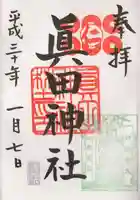 奉拝
眞田神社
平成三十年一月七日